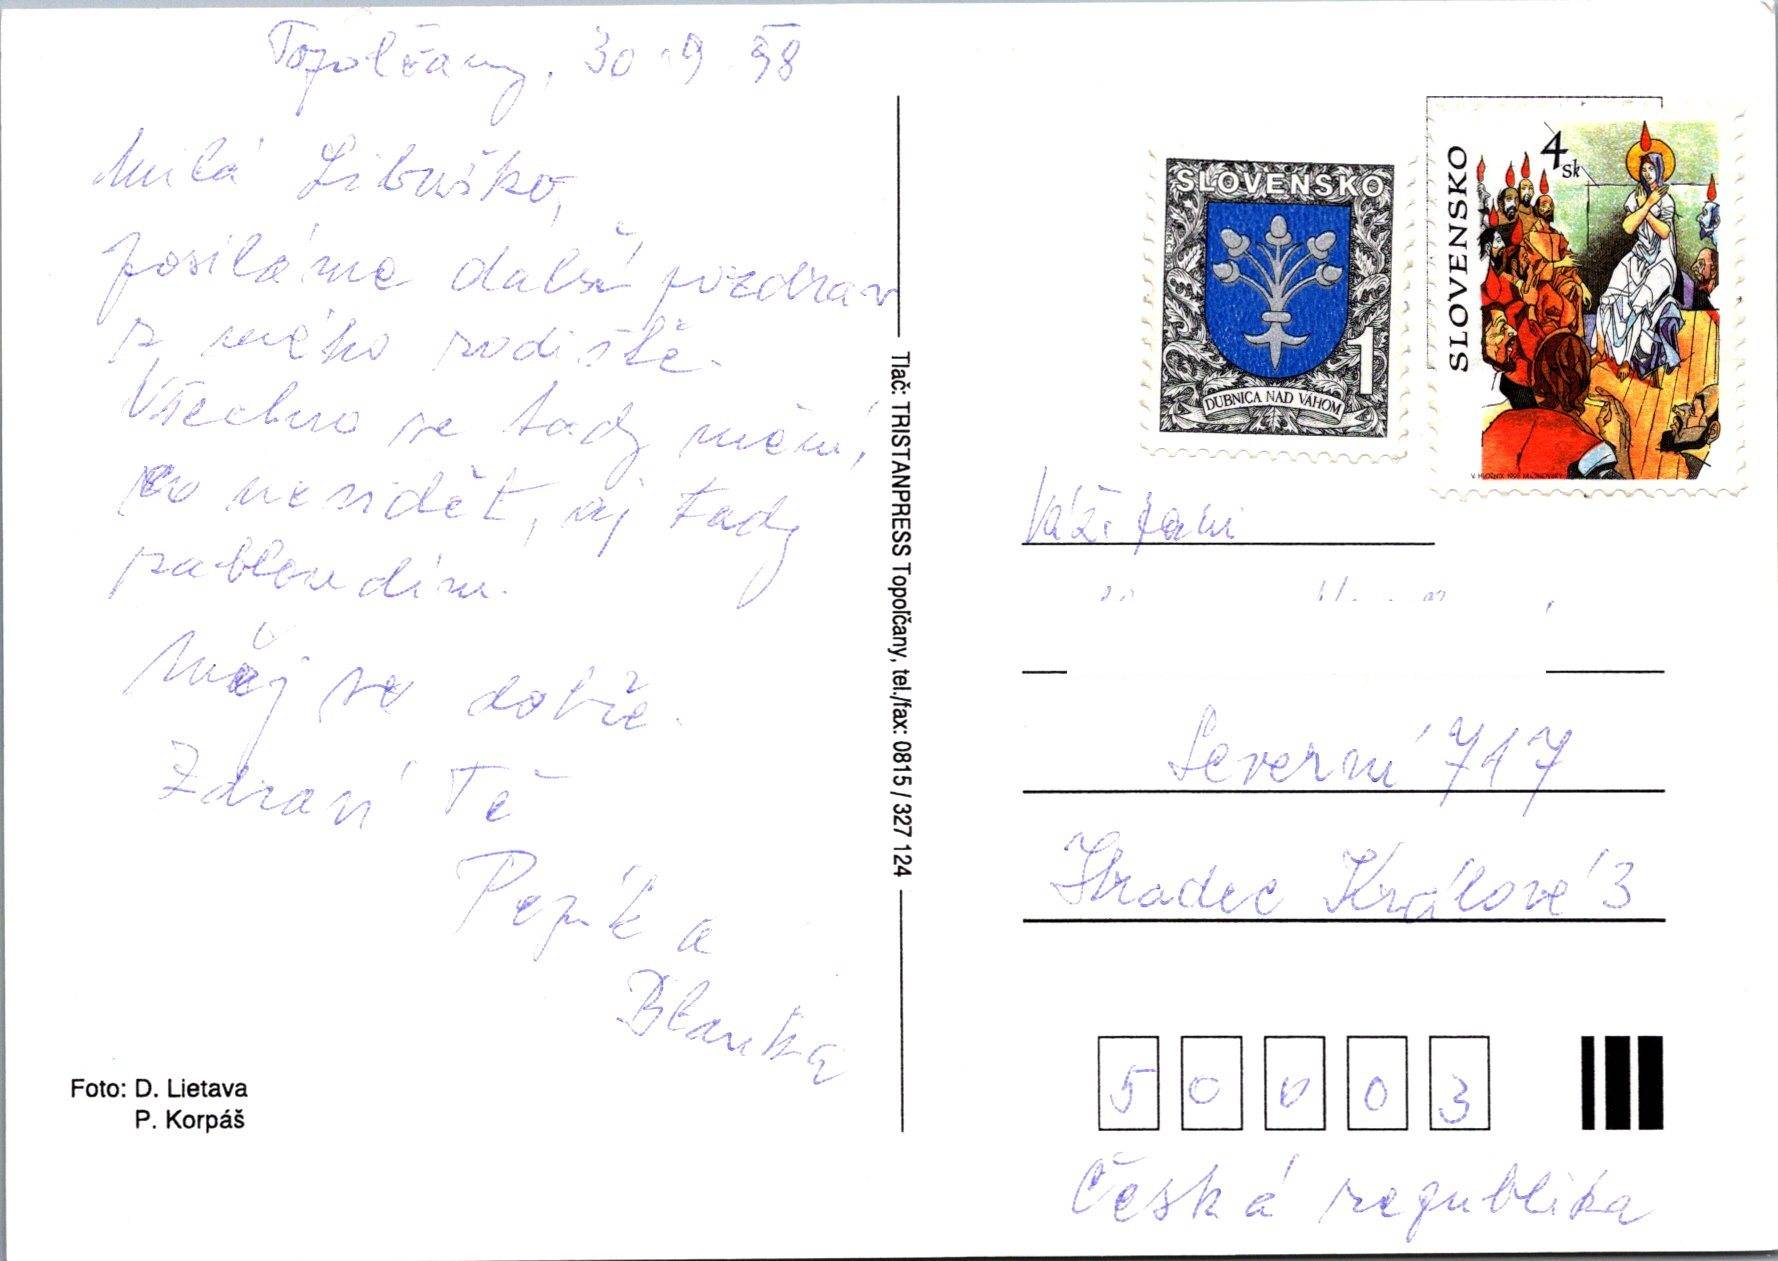 Topolčany, 30.9.98
Milá Libuško,
posíláme další pozdrav
z mého rodiště.
Všechno se tady mění,
co nevidět, aj tady
zabloudím.
Měj se dobře.
Zdraví Tě
Pepík a
Blanka
Foto: D. Lietava
P. Korpáš
Tlač: TRISTANPRESS Topoľčany, tel./fax: 0815 / 327 124
SLOVENSKO
1
DUBNICA NAD VÁHOM
SLOVENSKO
4 Sk
Váž. paní
Severní 717
Hradec Králové 3
50003
Česká republika